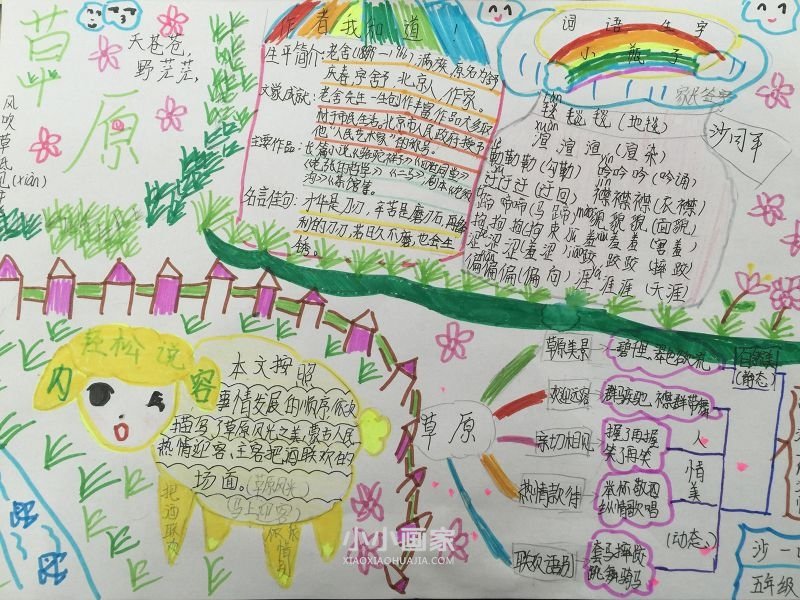 草原
天苍苍，
野茫茫，
风吹草低见(xiàn)
作者我知道！
生平简介：老舍(1899-1966)，满族，原名为舒
庆春，字舍予，北京人，作家。
文学成就：老舍先生一生创作丰富，作品大多取
材于市民生活。北京市人民政府授予
他"人民艺术家"的称号。
主要作品：长篇小说《骆驼祥子》《四世同堂》
茶馆
名言佳句：才华是刀刃，辛苦是磨刀石，再锋
利的刀刃，若日久不磨，也会生
锈。
词语生字
小瓶子
家长签字
毯毯毯(地毯)
xuàn
渲渲渲(渲染)
勒勒勒(勾勒)
吟吟吟(吟诵)
迂迂迂(迂回)
襟襟襟(衣襟)
蹄蹄蹄(马蹄)
貌貌貌(面貌)
拘拘拘(拘束)
羞羞羞(害羞)
涩涩涩(羞涩)
跤跤跤(摔跤)
偏偏偏(偏向)
涯涯涯(天涯)
轻松说
内容
本文按照
事情发展的顺序依次
描写了草原风光之美、蒙古人民
热情迎客、主客把酒联欢的
场面。(草原风光)
(马上迎客)
把酒联欢
依依惜别
草原
草原美景
欢迎远客
亲切相见
热情款待
联欢话别
碧翠欲流
群马疾驰、襟群带舞
握了再握
笑了再笑
举杯敬酒
纵情歌唱
套马摔跤
跳舞骑马
(静态)
人
情
美
(动态)
沙一
五年级
小小画家
XIAOXIAOHUAJIA.COM